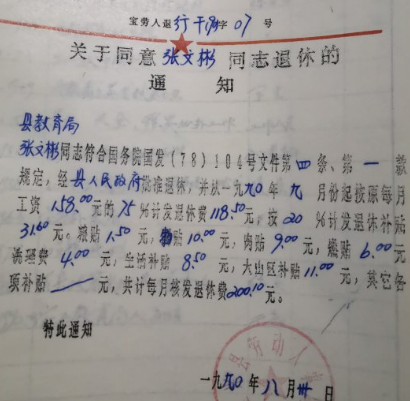 宝劳人退行干字07号
关于同意张文彬同志退休的
通知
县教育局
张文彬同志符合国务院国发(78)104号文件第四条、第一款
规定,经县人民政府批准退休,并从一九九〇年九月份起按原每月
工资158.00元的75%计发退休费118.50元,按20%计发退休补贴
31.60元。粮贴1.50元,贴10.00元,肉贴9.00元,燃贴6.00元
洗理费4.00元,生活补贴8.50元,大山区补贴11.00元,其它各
项补贴—元,共计每月核发退休费200.10元。
特此通知
一九九〇年八月卅日